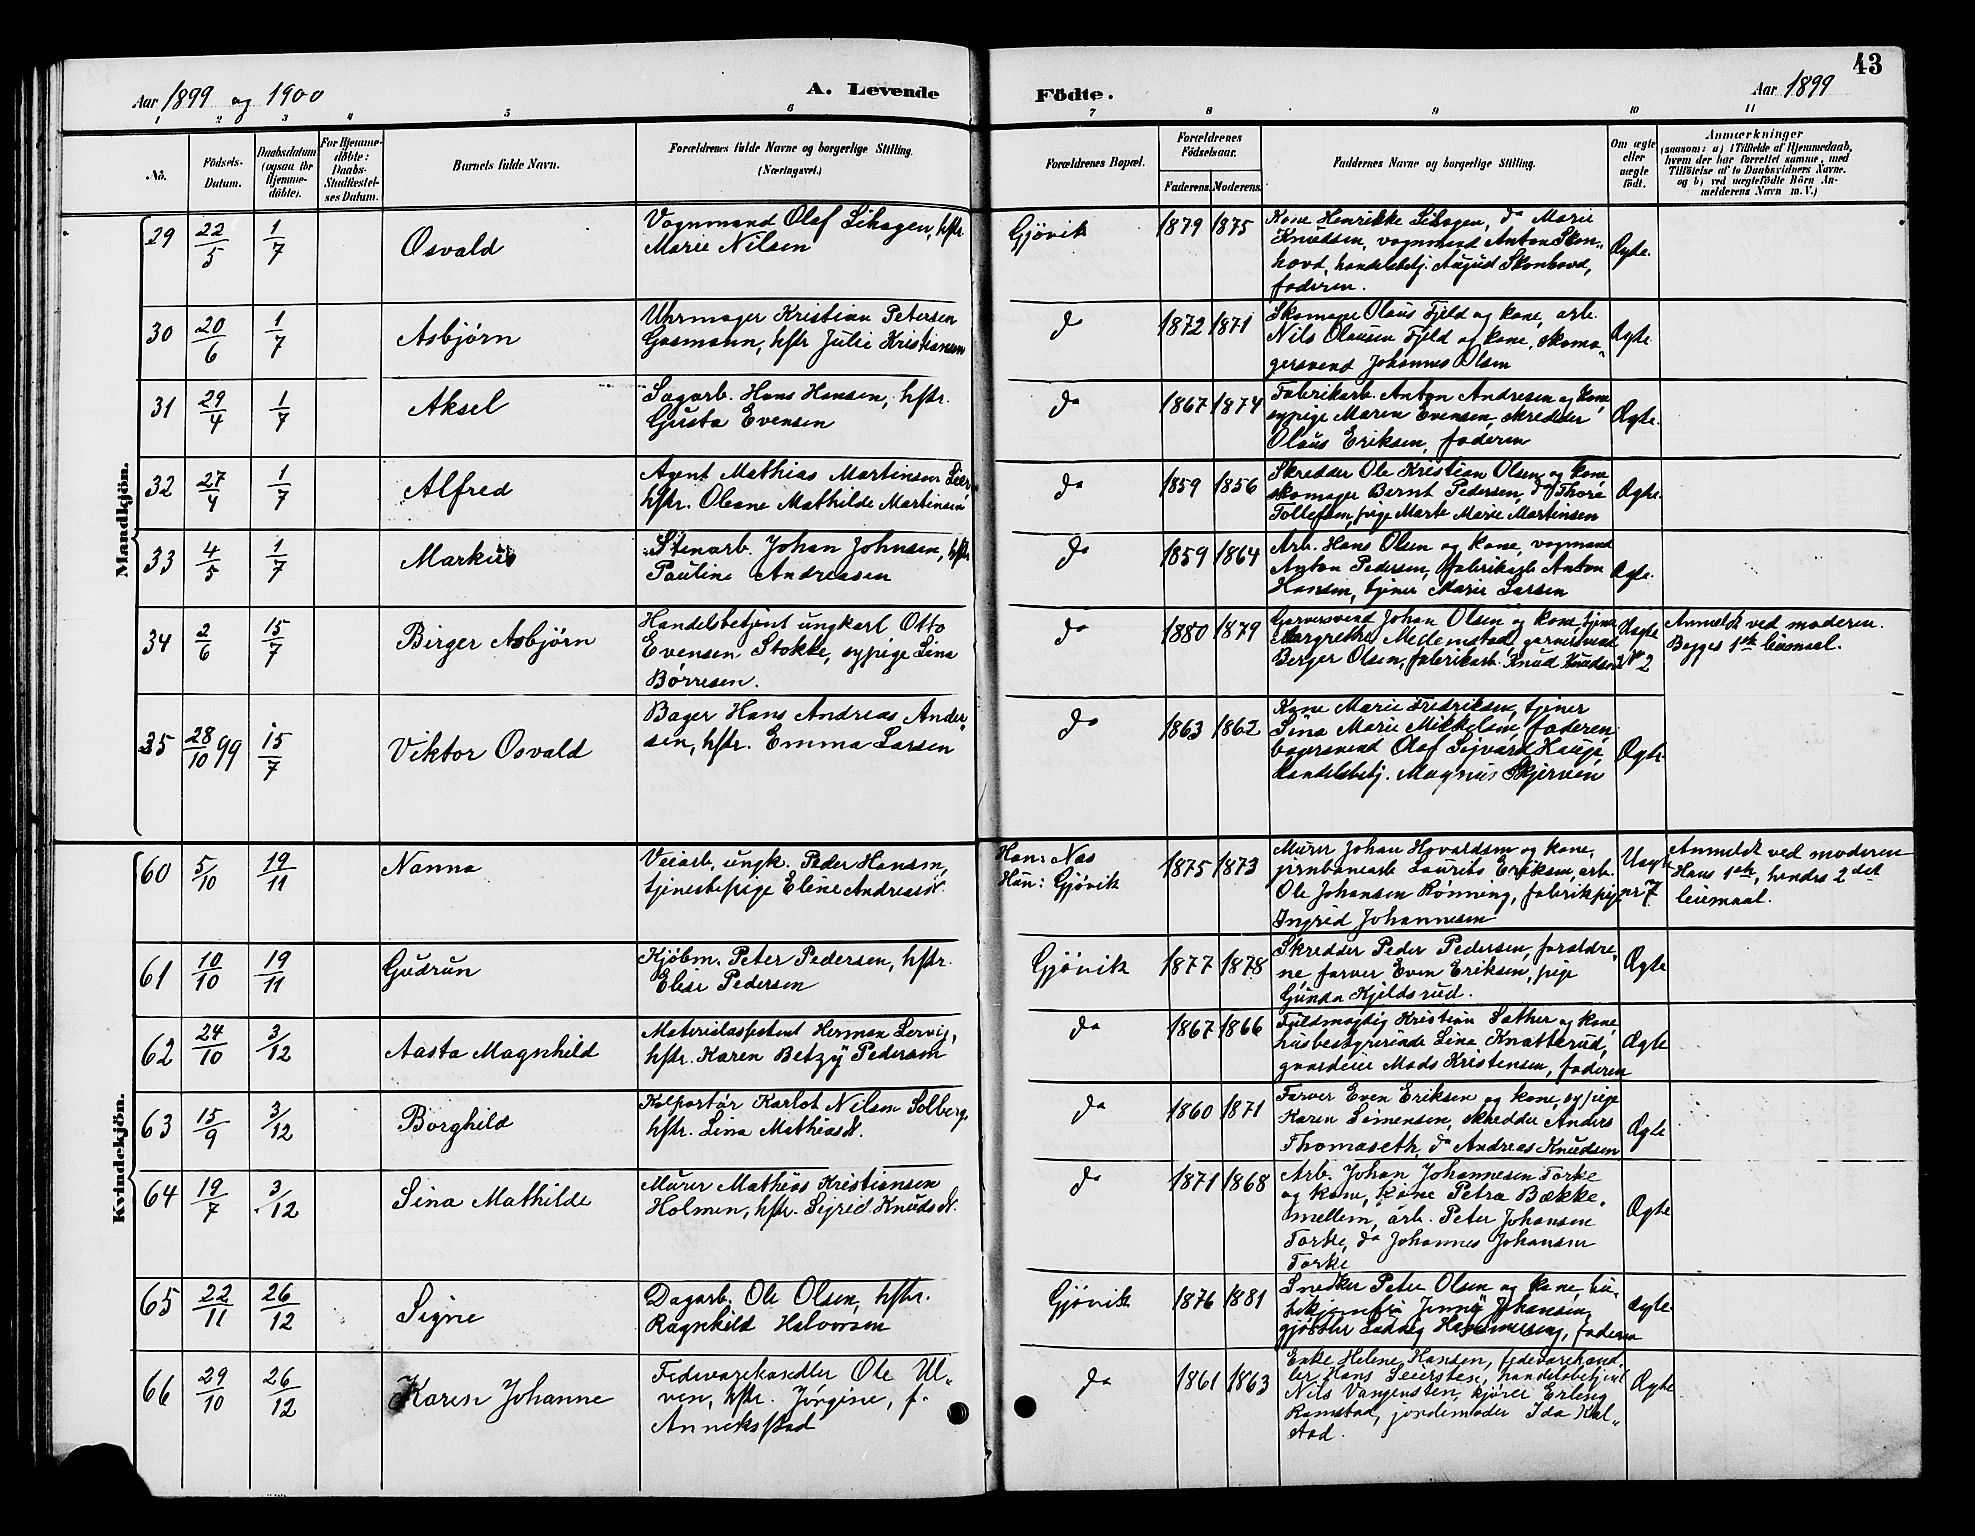 43
Aar 1899 og 1900
A. Levende
Födte.
Aar 1899
1 2 3 4 5 6 7 8 9 10 11
No.
Födsels-
Datum.
Daabsdatum
(ogsaa for
Hjemme-
döbte).
For Hjemme-
döbte:
Daabs-
Stadfæstel-
ses Datum.
Barnets fulde Navn.
Forældrenes fulde Navne og borgerlige Stilling.
(Næringsvei.)
Forældrenes Bopæl.
Forældrenes
Födselsaar.
Faderens. Moderens.
Faddernes Navne og borgerlige Stilling.
Om ægte
eller
uægte
födt.
Anmærkninger
(saasom: a) i Tilfælde af Hjemmedaab,
hvem der har forrettet samme, med
Tilföielse af to Daabsvidners Navne.
og b) ved uægtefödte Börn An-
melderens Navn m. V.)
Mandkjön.
29 22/5 1/7 Osvald
Vognmand Olaf Sihagen, hstr.
Marie Nilsen
Gjövik 1879 1875
Kone Henrikke Sihagen, do Marie
Knudsen, vognmand Anton Skon-
hovd, handelsbetj. August Skonhovd,
faderen.
Ægte.
30 20/6 1/7 Asbjørn
Uhrmager Kristian Petersen
Gosmann, hstr Julie Kristiansen
do 1872 1871
Skomager Olaus Fjeld og kone, arb.
Nils Olausen Fjeld og kone, skoma-
gersvend Johannes Olsen
Ægte.
31 29/4 1/7 Aksel
Sagarb. Hans Hansen, hstr.
Gusta Evensen
do 1867 1874
Fabrikarb. Anton Andresen og kone,
sypige Maren Evensen, skredder
Olaus Eriksen, faderen
Ægte.
32 27/4 1/7 Alfred
Agent Mathias Martinsen Lier
hstr. Oleane Mathilde Martinsen
do 1859 1856
Skredder Ole Kristian Olsen og kone,
skomager Bernt Pedersen, do Thore
Tollefsen, pige Marte Marie Martinsen
Ægte.
33 4/5 1/7 Markus
Stenarb. Johan Johnsen, hstr
Pauline Andreasen
do 1859 1864
Arb. Hans Olsen og kone, vogmand
Anton Pedersen, fabrikarb Anton
Hansen, tjener Marie Larsen
Ægte.
34 2/6 15/7 Birger Asbjørn
Handelsbetjent ungkarl Otto
Evensen Stokke, sypige Lina
Børresen.
do 1880 1879
Garversvend Johan Olsen og kone, tjener
Margrethe Medemstad, garversvend
Berger Olsen, fabrikarb. Knud Knudsen
Uægte
No 2
Anmeldt ved moderen.
Begges 1ste leiemaal.
35 28/10 99 15/7 Viktor Osvald
Bager Hans Andreas Ander-
sen, hstr. Emma Larsen
do 1863 1862
Kone Marie Fredriksen, tjener
Lina Marie Mikkelsen, faderen
bagersvend Olaf Sigvard Hauge,
handelsbetj. Magnus Skjerven
Ægte.
Kvindekjön.
60 5/10 19/11 Nanna
Veiarb. ungk. Peder Hansen,
tjenestepige Eline Andreasd.
Han: Næs
Hun: Gjövik
1875 1873
Murer Johan Hovardsen og kone,
jernbanearb Laurits Eriksen, arb.
Ole Johansen Rønning, fabrikpige
Ingrid Johannesen
Uægte
nr 7
Anmeldt ved moderen
Hans 1ste, hendes 2det
leiemaal.
61 10/10 19/11 Gudrun
Kjöbm. Peter Pedersen, hstr.
Elise Pedersen
Gjövik 1877 1878
Skredder Peder Pedersen, forældre-
ne, farver Even Eriksen, pige
Gunda Kjeldsrud.
Ægte
62 24/10 3/12 Aasta Magnhild
Materialassistent Herman Lervig,
hstr. Karen Betzy Pedersen
do 1867 1866
Fuldmægtig Kristian Sæther og kone,
husbestyrerinde Lina Knatterud,
gaardeier Mads Kristensen, faderen
Ægte
63 15/9 3/12 Borghild
Kolportør Karlot Nilsen Solberg,
hstr. Lina Mathiasd.
do 1860 1871
Farver Even Eriksen og kone, sypige
Karen Simensen, skredder Anders
Thomaseth, do Andreas Knudsen
Ægte
64 19/7 3/12 Lina Mathilde
Murer Mathias Kristiansen
Holmen, hstr. Sigrid Knudsd.
do 1871 1868
Arb. Johan Johannesen Torke
og kone, kone Petra Bække-
mellem, arb. Peter Johansen
Torke, do Johannes Johansen
Torke
Ægte
65 22/11 26/12 Signe
Dagarb. Ole Olsen, hstr.
Ragnhild Halvorsen
Gjövik 1876 1881
Snedker Peter Olsen og kone, bu-
tikjomfru Jenny Johansen,
gjørtler Ludvig , faderen
Ægte
66 29/10 26/12 Karen Johanne
Fedevarehandler Ole Ul-
ven, hstr. Jørgine, f.
Anneksstad
do 1861 1863
Enke Helene Hansen, fedevarehand-
ler Hans Seiersten, handelsbetjent
Nils Vangensten, kjører Erling
Ramstad, jordemoder Ida Kal-
stad.
Ægte